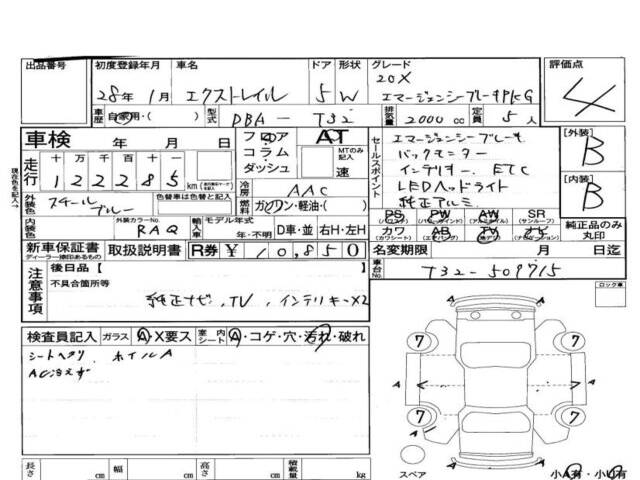 出品番号 初度登録年月 車名 ドア 形状 グレード 評価点
20X
28年 1月 エクストレイル 5 W エマージェンシーブレーキPKG 4
車歴 自家用・( ) 型式 DBA-T32 排気量 2000 cc 定員 5 人
車検 年 月 日 フロア AT エマージェンシーブレーキ [外装] B
コラム MTのみ記入 バックモニター
走行 十万千百十一 ダッシュ 速 セールスポイント インテリキー、ETC
122285 km 冷房 AAC LEDヘッドライト [内装] B
現在色を記入 外装色 スチールブルー 色替車は色替と記入 燃料 ガソリン・軽油・( ) 純正アルミ
PS PW AW SR
(パワステ) (パワーウィンドウ) (アルミホイル) (サンルーフ)
内装色 外装カラーNo. RAQ 輸入車 モデル年式 年・不明 D車・並 右H・左H カワ AB TV ナビ 純正品のみ丸印
(カワシート) (エアバッグ) (ナビゲーション)
新車保証書 取扱説明書 R券 ¥10,850 名変期限 月 日迄
ディーラー捺印あるもの
車台No. T32-509715
注意事項 後日品【 】 ロック車
不具合箇所等
純正ナビ、TV、インテリキーX2
検査員記入 ガラス A・X要ス 室内シート A・コゲ・穴・汚れ・破れ
シートヘタリ、ホイルA
AC冷えず
7 7
A A A A
7 7
A A
スペア 小A有・小U有
長さ cm 幅 cm 高さ cm 積載量 kg